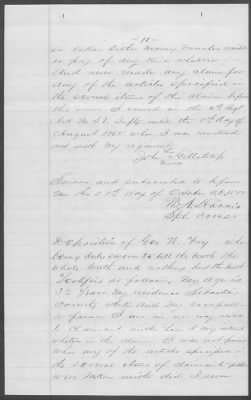 -10-
or taken either money voucher receipt
or pay of any kind whatever
And never made any claim for
any of the articles specified in
the several items of this claim before
this one. I was in the 6th Regt
And until the 1st day of
August 1865 when I was mustered
out with my regiment
John Gillstrap
Sworn and subscribed to before
me this 20th day of October A.D.
Spl. Comsr
Deposition of Geo W. Fry who
being duly sworn to tell the truth the
whole truth and nothing but the truth
Testifies as follows, My age is
32 years My residence Sebastian
County Ark And My occupation
a farmer I am in no way related
to claimant nor have I any interest
whatever in the claim. I was not present
when any of the articles specified in
the several items of claimants petition
were taken neither did I ever